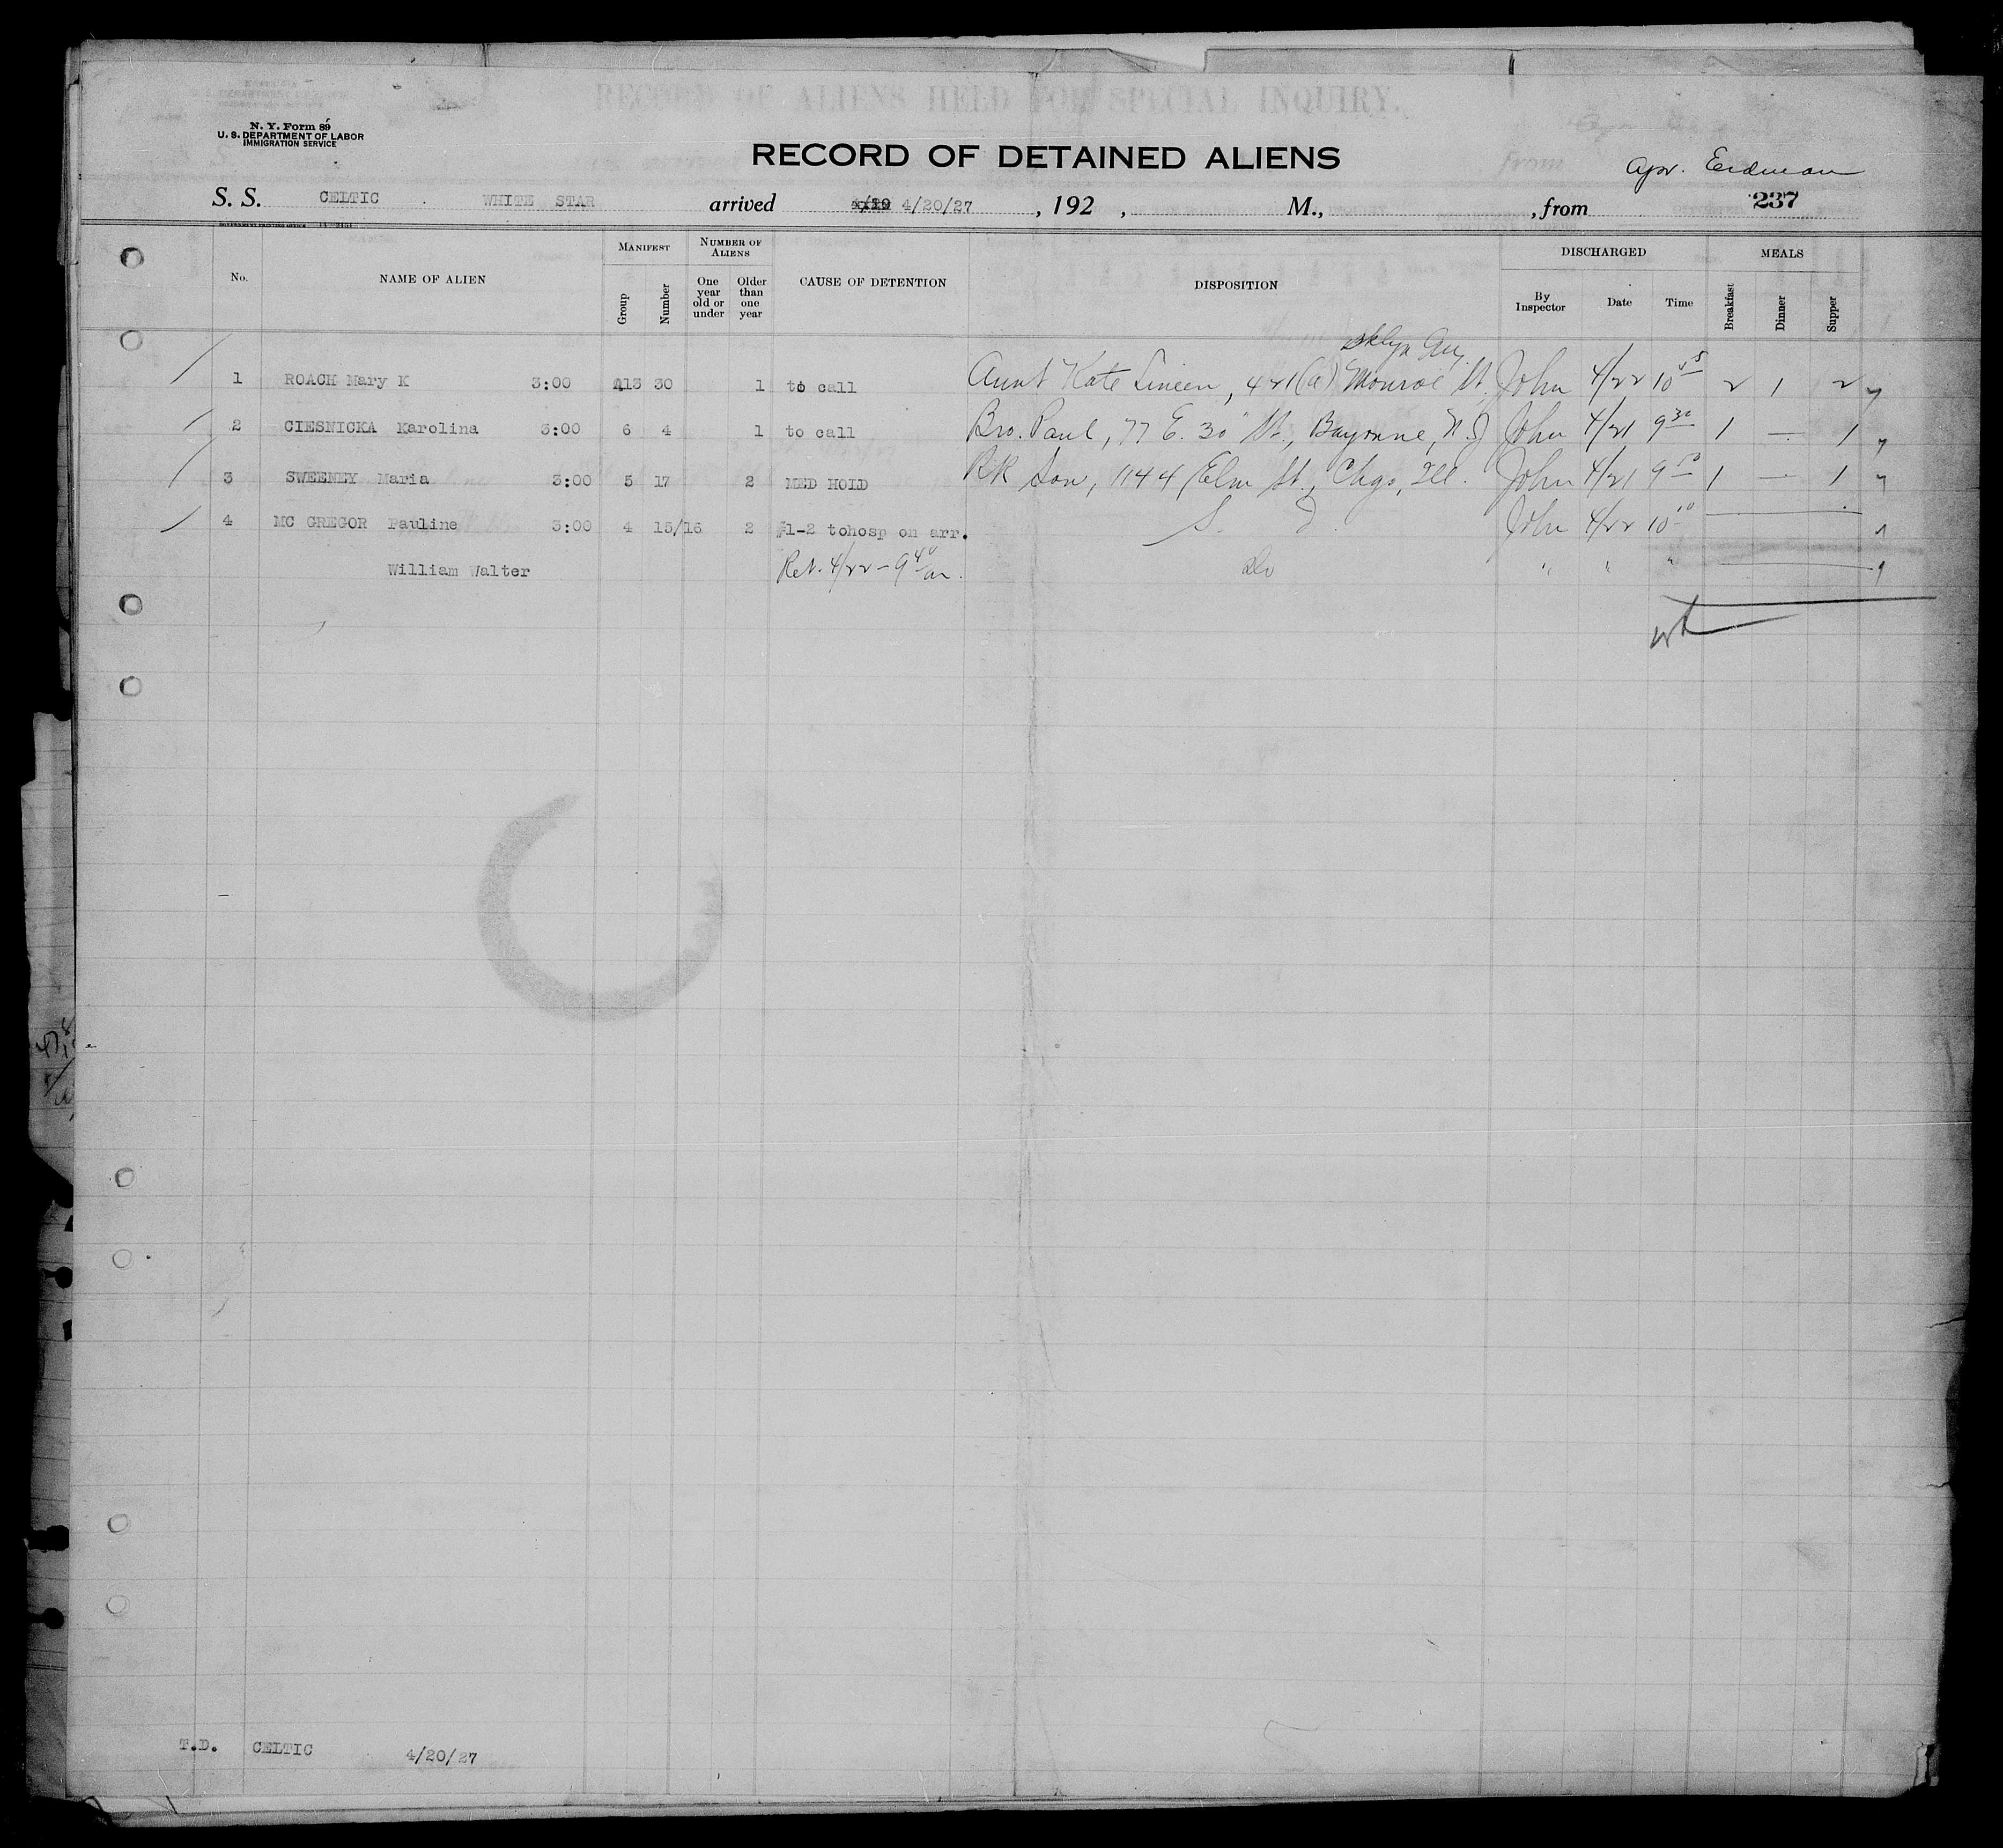 N. Y. Form 89
U. S. DEPARTMENT OF LABOR
IMMIGRATION SERVICE
RECORD OF ALIENS HELD FOR SPECIAL INQUIRY.
RECORD OF DETAINED ALIENS
Erdman
S. S. CELTIC WHITE STAR arrived 4/20/27, 192 , M., , from 237
GOVERNMENT PRINTING OFFICE
No. NAME OF ALIEN MANIFEST NUMBER OF ALIENS CAUSE OF DETENTION DISPOSITION DISCHARGED MEALS
Group Number One year old or under Older than one year By Inspector Date Time Breakfast Dinner Supper
Bklyn
1 ROACH Mary K 3:00 13 30 1 to call Aunt Kate 421(a) Monroe St. John 4/22 10 2 1 2
2 CIESNICKA Karolina 3:00 6 4 1 to call Bro. Paul, 77 E. 30" St., Bayonne, N.J John 4/21 9 30 1 — 1
3 SWEENEY Maria 3:00 5 17 2 MED HOLD RR Son, 1144 Elm St., Chgo, Ill. John 4/21 9 50 1 — 1
4 MC GREGOR Pauline 3:00 4 15/16 2 1-2 tohosp on arr. John 4/22 10 10
William Walter Ret. 4/22 - 9 40 am. Do " " "
T.D. CELTIC 4/20/27